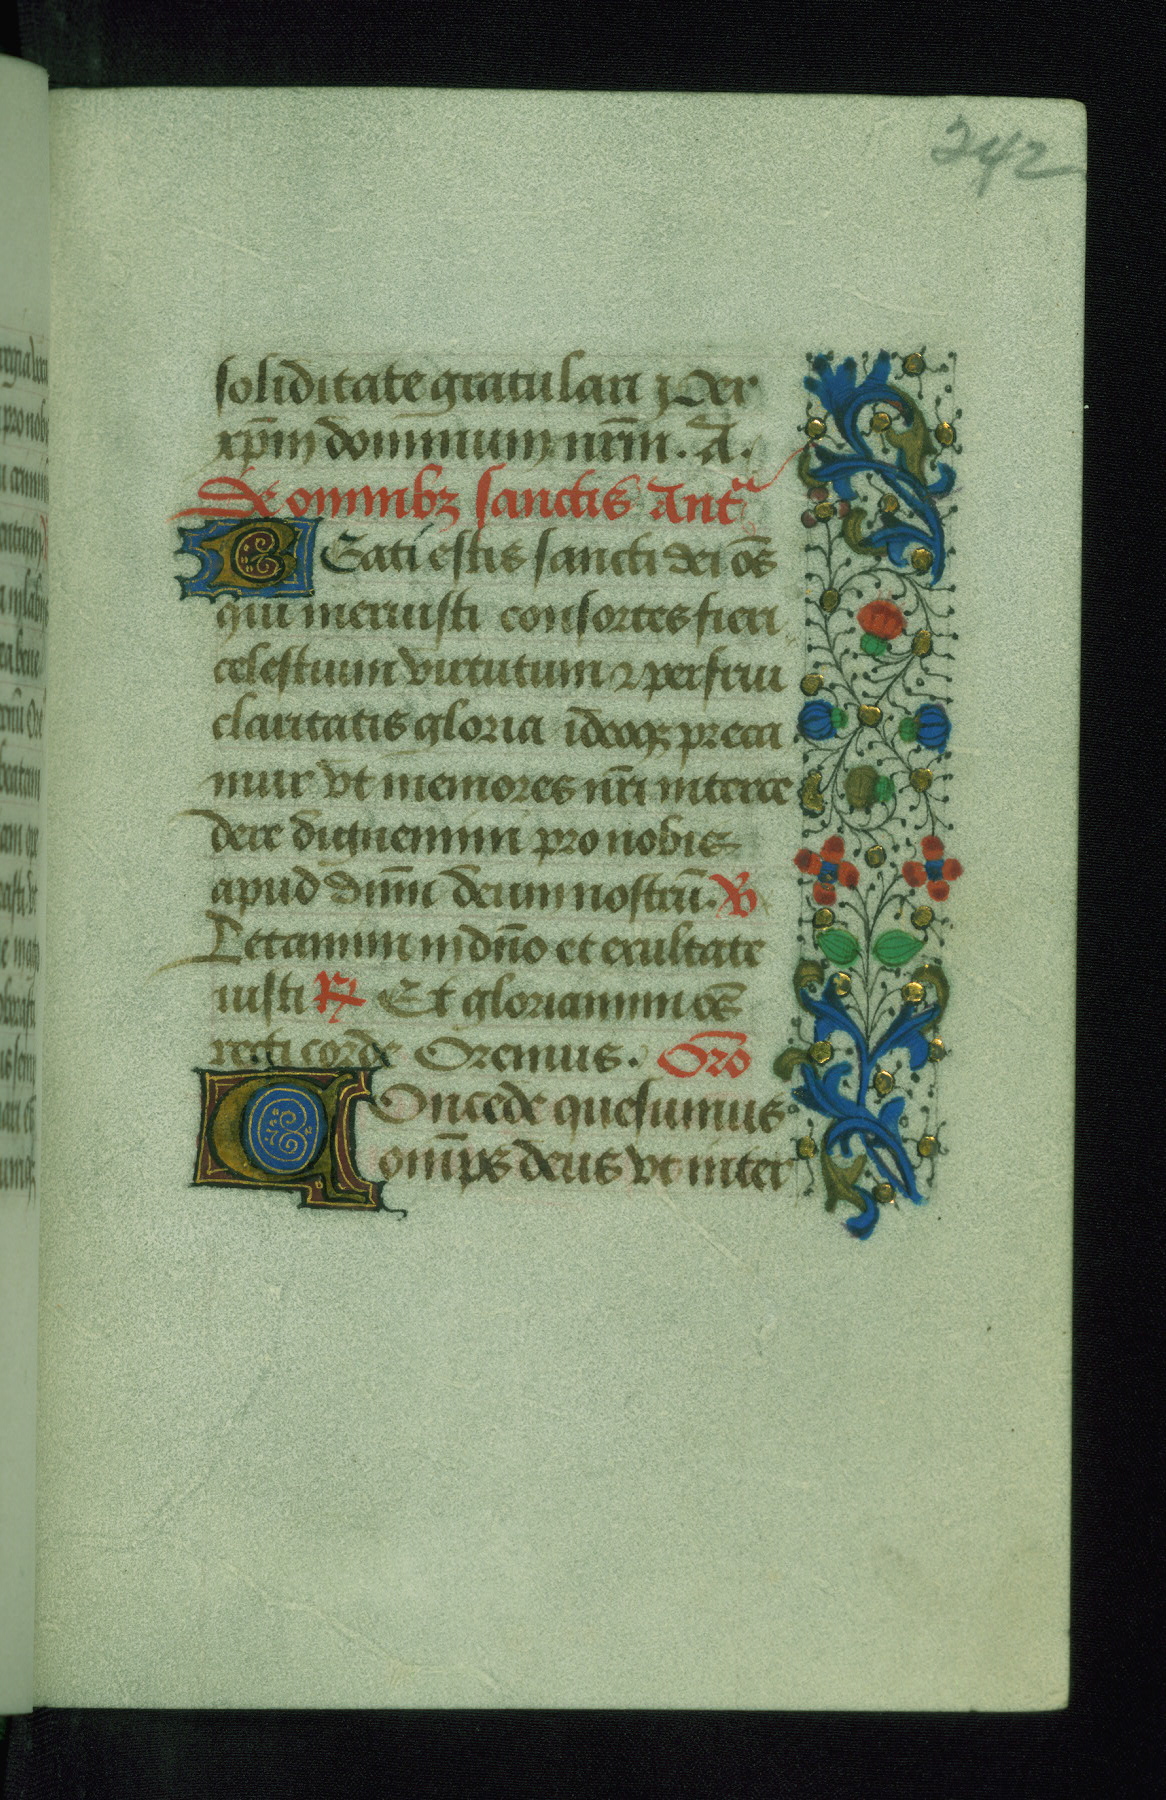 242
soliditate gratulari ꝑ Per
xp̄m dominum nr̄m. A.
De omnibꝫ sanctis Antᵃ
BEati estis sancti dei oēs
qui meruisti consortes fieri
celestium virtutum ⁊ perfrui
claritatis gloria ideoqꝫ preca
mur vt memores nr̄i interce
dere dignemini pro nobis
apud dnm̄ deum nostrū. ℣
Letamini in dn̄o et exultate
iusti ℟ Et gloriamini oēs
recti corde Oremus. Oro
COncede quesumus
omp̄s deus vt inter